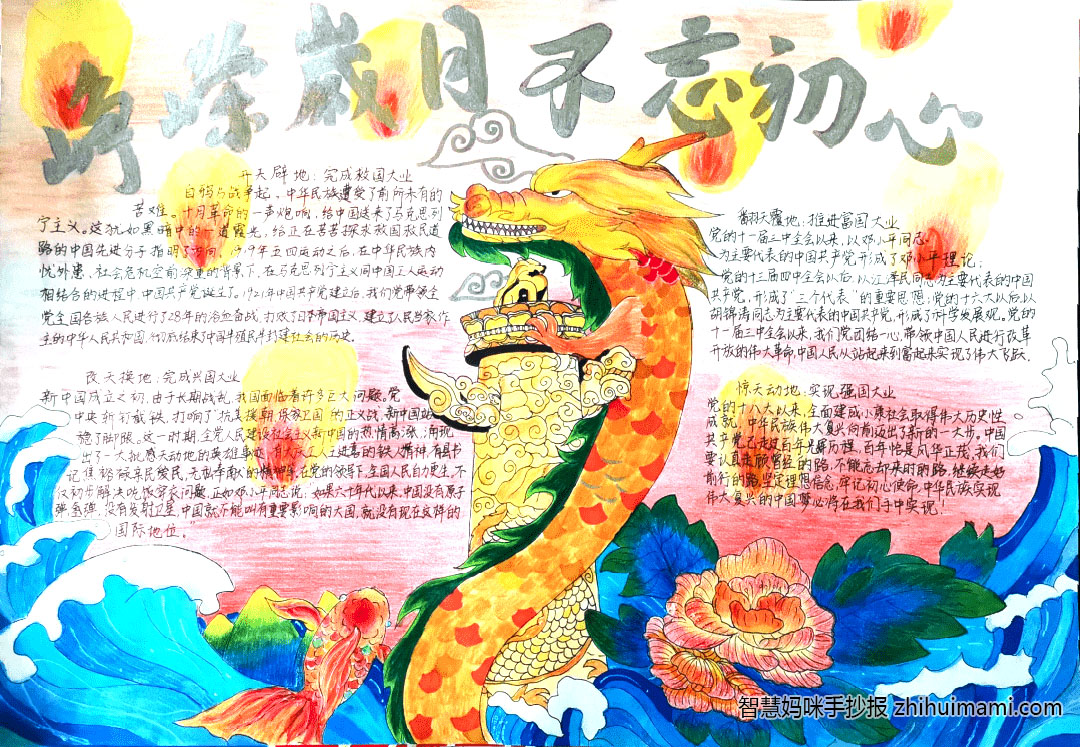 峥嵘歲月不忘初心
开天辟地：完成救国大业
自鸦片战争起，中华民族遭受了前所未有的
苦难。十月革命的一声炮响，给中国送来了马克思列
宁主义。这犹如黑暗中的一道霞光，给正在苦苦探求救国救民道
路的中国先进分子指明了方向，1919年五四运动之后，在中华民族内
忧外患，社会危机空前深重的背景下，在马克思列宁主义同中国工人运动
相结合的进程中，中国共产党诞生了。1921年中国共产党建立后，我们党带领全
党全国各族人民进行了28年的浴血奋战，打败了日本帝国主义，建立了人民当家作
主的中华人民共和国，彻底结束了中国半殖民半封建社会的历史。
改天换地：完成兴国大业
新中国成立之初，由于长期战乱，我国面临着许多巨大问题。党
中央斩钉截铁，打响了"抗美援朝，保家卫国"的正义战，新中国站
稳了脚跟。这一时期，全党人民建设社会主义新中国的热情高涨，涌现
出了一大批感天动地的英雄事迹，有大庆工人王进喜的铁人精神，有县书
记焦裕禄亲民爱民、无私奉献的精神等，在党的领导下，全国人民自力更生，不
仅初步解决吃饭穿衣问题，正如邓小平同志说：如果六十年代以来，中国没有原子
弹、氢弹，没有发射卫星，中国就不能叫有重要影响的大国，就没有现在这样的
国际地位。"
翻天覆地：推进富国大业
党的十一届三中全会以来，以邓小平同志
为主要代表的中国共产党，形成了邓小平理论；
党的十三届四中全会以后，以江泽民同志为主要代表的中国
共产党，形成了"三个代表"的重要思想；党的十六大以后，以
胡锦涛同志为主要代表的中国共产党，形成了科学发展观。党的
十一届三中全会以来，我们党团结一心，带领中国人民进行改革
开放的伟大革命，中国人民从站起来到富起来实现了伟大飞跃。
惊天动地：实现强国大业
党的十八大以来，全面建成小康社会取得伟大历史性
成就，中华民族伟大复兴向前迈出了新的一大步。中国
共产党已走过百年光辉历程，百年恰是风华正茂，我们
要认真回顾曾经的路，不能忘却来时的路，继续走好
前行的路，坚定理想信念，牢记初心使命，中华民族实现
伟大复兴的中国梦必将在我们手中实现！
智慧妈咪手抄报 zhihuimami.com